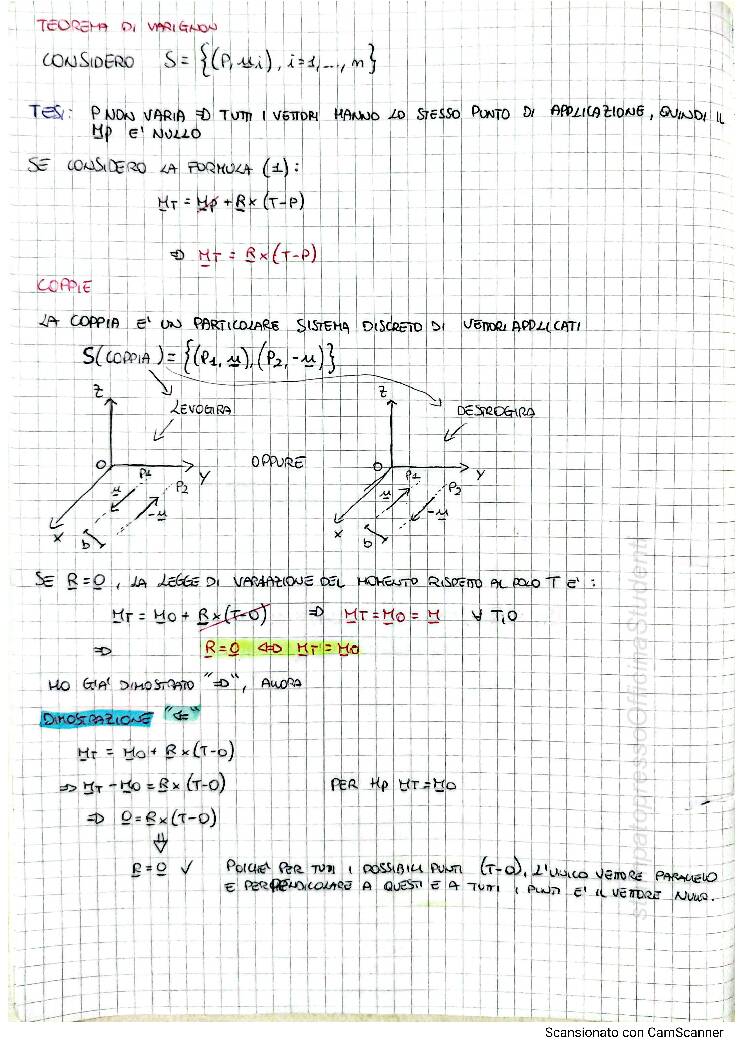 TEOREMA DI VARIGNON
CONSIDERO S = {(P, u̲i), i=1,..., n}
TESI: P NON VARIA ⇒ TUTTI I VETTORI HANNO LO STESSO PUNTO DI APPLICAZIONE, QUINDI IL
M̲p E' NULLO
SE CONSIDERO LA FORMULA (1):
M̲T = M̲p + R̲ x (T-P)
⇒ M̲T = R̲ x (T-P)
COPPIE
LA COPPIA E' UN PARTICOLARE SISTEMA DISCRETO DI VETTORI APPLICATI
S(COPPIA) = {(P1, u̲), (P2, -u̲)}
Z
LEVOGIRA
O
P1
Y
u̲
P2
-u̲
X
b
OPPURE
Z
DESTROGIRA
O
P1
Y
u̲
P2
-u̲
X
b
SE R̲ = 0̲, LA LEGGE DI VARIAZIONE DEL MOMENTO RISPETTO AL POLO T E':
M̲T = M̲O + R̲ x (T-O) ⇒ M̲T = M̲O = M̲ ∀ T,O
⇒ R̲ = 0̲ ⇔ M̲T = M̲O
HO GIA' DIMOSTRATO "⇒", ALLORA
DIMOSTRAZIONE "⇐"
M̲T = M̲O + R̲ x (T-O)
⇒ M̲T - M̲O = R̲ x (T-O) PER Hp M̲T = M̲O
⇒ 0̲ = R̲ x (T-O)
⇓
R̲ = 0̲ ✓ POICHE' PER TUTTI I POSSIBILI PUNTI (T-O), L'UNICO VETTORE PARALLELO
E PERPENDICOLARE A QUESTI E A TUTTI I PUNTI E' IL VETTORE NULLO.
stampatopressoOfficinaStudenti
Scansionato con CamScanner